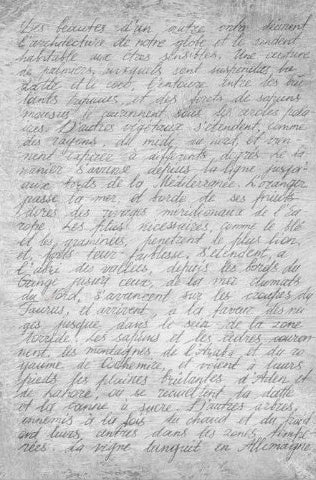 Des beautés d'un autre ordre décorent
l'architecture de notre globe et le rendent
habitable aux êtres sensibles. Une ceinture
de palmiers, auxquels sont suspendus, la
datte et le coco, l'entoure entre les brû
lants tropiques, et des forêts de sapins
mousseux le couronnent sous les cercles pola
ires. D'autres végétaux s'étendent, comme
des rayons, du midi au nord, et vien
nent expirer à différents degrés. Le ba
nanier s'avance depuis la ligne jusqu'
aux bords de la Méditerranée. L'oranger
passe la mer, et borde de ses fruits
dorés les rivages méridionaux de l'Eu
rope. Les plus nécessaires, comme le blé
et les graminées, pénètrent le plus loin,
et forts leur faiblesse, s'étendent à
l'abri des vallées, depuis les bords du
Gange jusqu'à ceux de la mer
du Nord, s'avancent sur les croupes du
Taurus, et arrivent, à la faveur des nei
ges jusque dans le sein de la zone
torride. Les sapins et les cèdres couron
nent les montagnes de l'Arabie et du ro
yaume de Cachemire, et voient à leurs
pieds les plaines brûlantes d'Aden et
de Lahore, où se recueillent la datte
et la canne à sucre. D'autres arbres,
ennemis à la fois du chaud et du froid
ont leurs centres dans les zones tempé
rées. La vigne languit en Allemagne